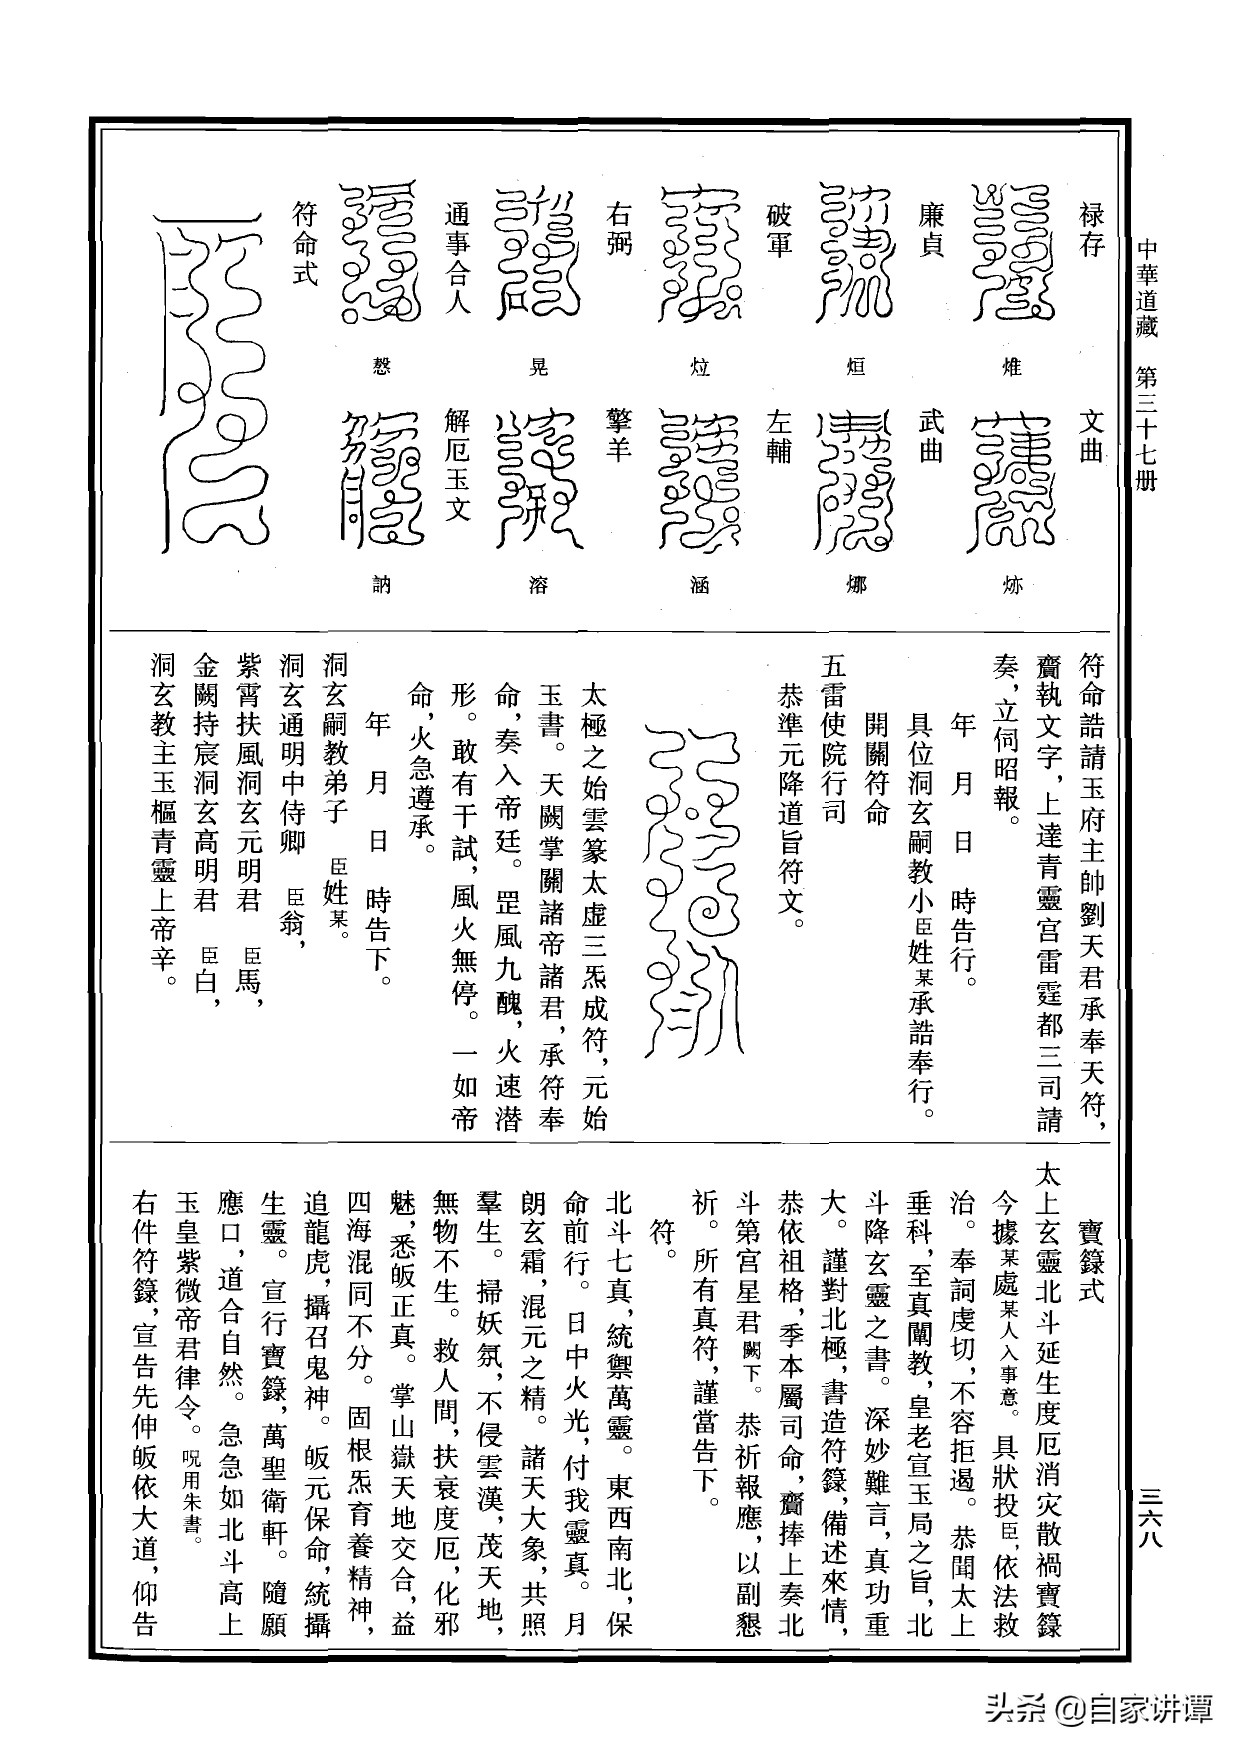 中華道藏　第三十七册
禄存
㷍
文曲
㳍
廉貞
烜
武曲
㛂
破軍
㕇
左輔
涵
右弼
晃
擎羊
溶
通事合人
慤
解厄玉文
訥
符命式
符命誥請玉府主帥劉天君承奉天符，
齎執文字，上達青靈宫雷霆都三司請
奏，立伺昭報。
年　月　日　時告行。
具位洞玄嗣教小臣姓某承誥奉行。
開關符命
五雷使院行司
恭準元降道旨符文。
太極之始雲篆太虚三炁成符，元始
玉書。天闕掌關諸帝諸君，承符奉
命，奏入帝廷。罡風九醜，火速潜
形。敢有干試，風火無停。一如帝
命，火急遵承。
年　月　日　時告下。
洞玄嗣教弟子　臣姓某。
洞玄通明中侍卿　臣翁，
紫霄扶風洞玄元明君　臣馬，
金闕持宸洞玄高明君　臣白，
洞玄教主玉樞青靈上帝辛。
寶籙式
太上玄靈北斗延生度厄消灾散禍寶籙
今據某處某人入事意。具狀投臣，依法救
治。奉詞虔切，不容拒遏。恭聞太上
垂科，至真闡教，皇老宣玉局之旨，北
斗降玄靈之書。深妙難言，真功重
大。謹對北極，書造符籙，備述來情，
恭依祖格，季本屬司命，齎捧上奏北
斗第宫星君闕下。恭祈報應，以副懇
祈。所有真符，謹當告下。
符。
北斗七真，統禦萬靈。東西南北，保
命前行。日中火光，付我靈真。月
朗玄霜，混元之精。諸天大象，共照
羣生。掃妖氛，不侵雲漢，茂天地，
無物不生。救人間，扶衰度厄，化邪
魅，悉皈正真。掌山嶽天地交合，益
四海混同不分。固根炁育養精神，
追龍虎，攝召鬼神。皈元保命，統攝
生靈。宣行寶籙，萬聖衛軒。隨願
應口，道合自然。急急如北斗高上
玉皇紫微帝君律令。呪用朱書。
右件符籙，宣告先伸皈依大道，仰告
三六八
头条 @自家讲谭